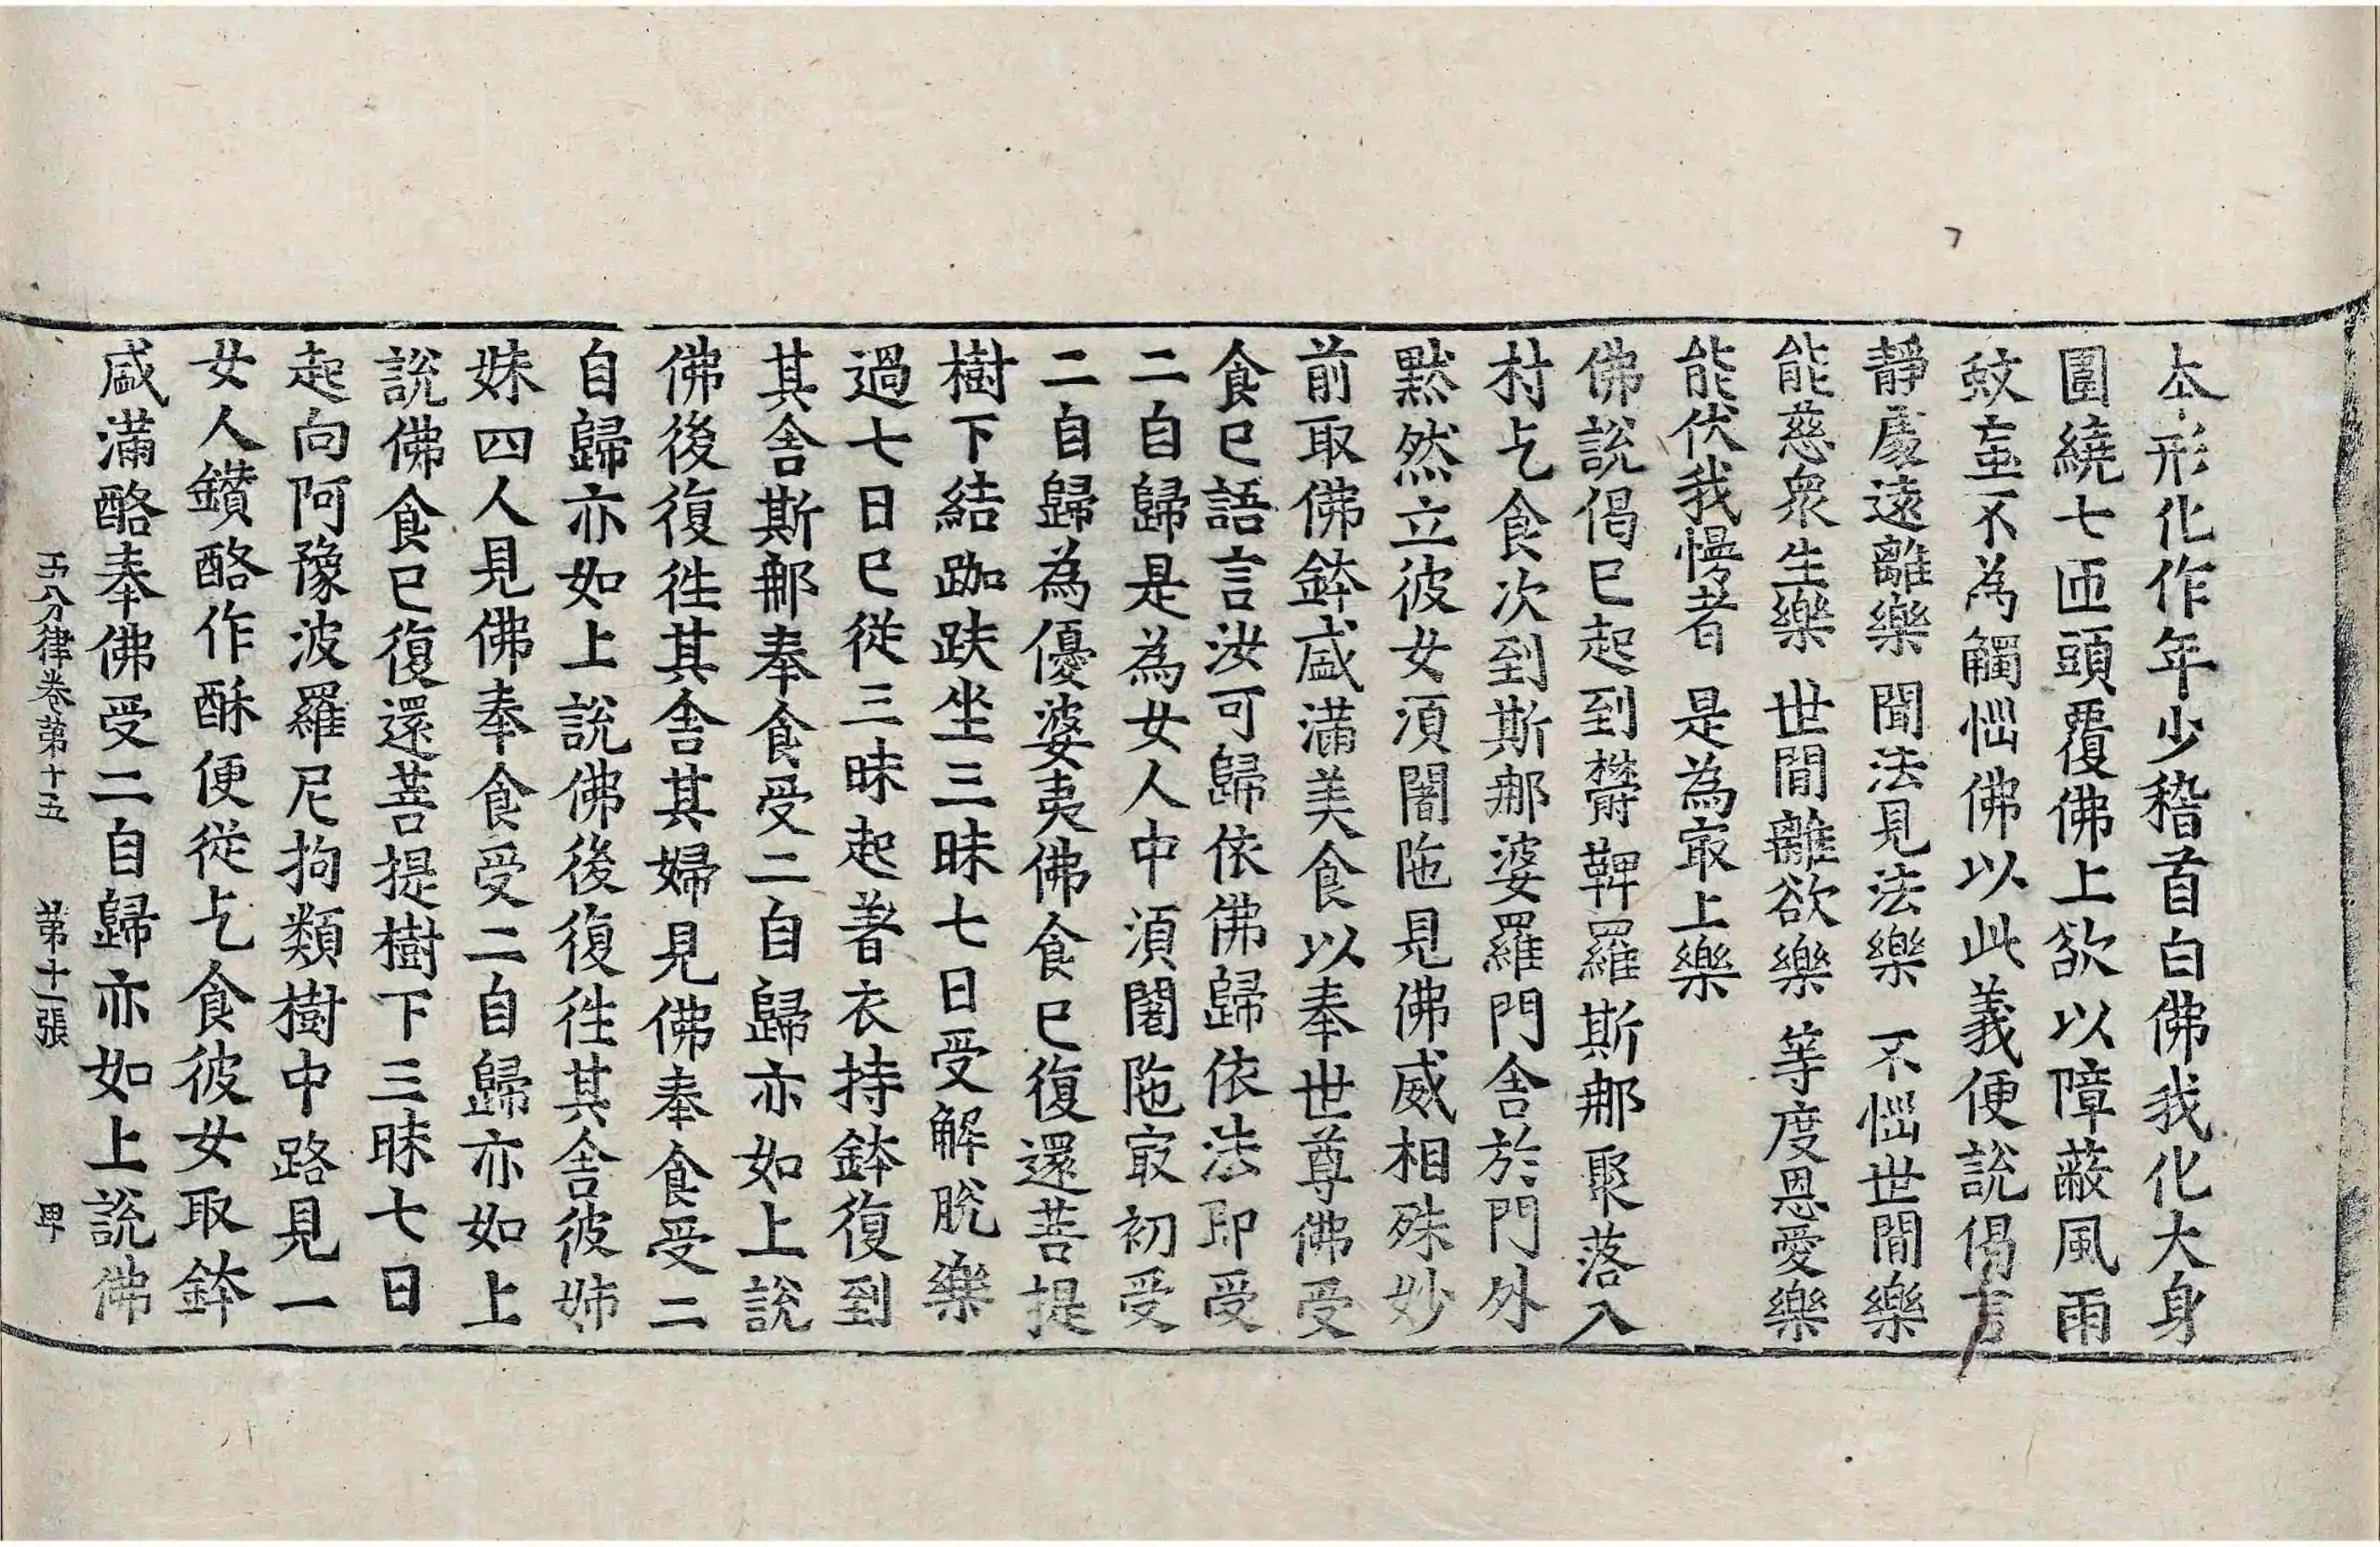 本形化作年少稽首白佛我化大身
圍繞七匝頭覆佛上欲以障蔽風雨
蚊䖟不為觸惱佛以此義便說偈言
靜處遠離樂 聞法見法樂 不惱世間樂
能慈衆生樂 世間離欲樂 等度恩愛樂
能伏我慢者 是為冣上樂
佛說偈已起到欝鞞羅斯那聚落入
村乞食次到斯那婆羅門舍於門外
默然立彼女須闍陁見佛威相殊妙
前取佛鉢盛滿美食以奉世尊佛受
食已語言汝可歸依佛歸依法即受
二自歸是為女人中須闍陁冣初受
二自歸為優婆夷佛食已復還菩提
樹下結跏趺坐三昧七日受解脫樂
過七日已從三昧起著衣持鉢復到
其舍斯那奉食受二自歸亦如上說
佛後復往其舍其婦見佛奉食受二
自歸亦如上說佛後復往其舍彼姊
妹四人見佛奉食受二自歸亦如上
說佛食已復還菩提樹下三昧七日
起向阿豫波羅尼拘類樹中路見一
女人鑽酪作酥便從乞食彼女取鉢
盛滿酪奉佛受二自歸亦如上說佛
五分律卷第十五 第十一張 甲